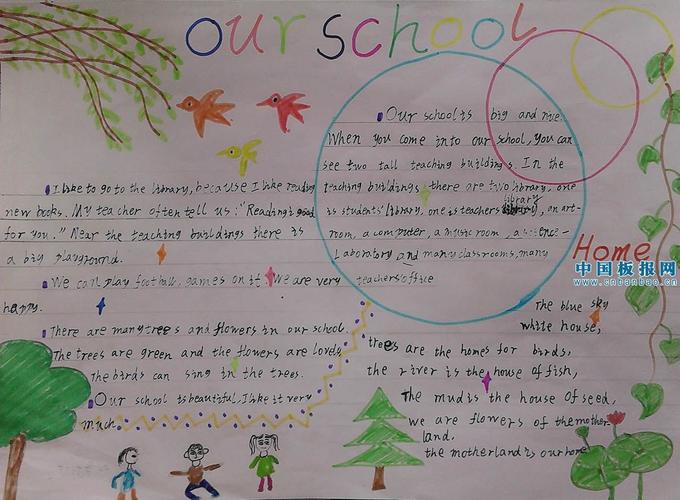 our school
Our school is big and nice.
When you come into our school, you can
see two tall teaching buildings. In the
teaching buildings there are two library, one
is students' library, one is teachers library, an art-
room, a computer, a music room, a science-
Laboratory and many classrooms, many
teachers'office
I like to go to the library, because I like reading
new books. My teacher often tell us: "Reading is good
for you." Near the teaching buildings there is
a big playground.
We can play football, games on it. We are very
happy.
There are many trees and flowers in our school.
The trees are green and the flowers are lovely
The birds can sing in the trees.
Our school is beautiful, I like it very
much.
Home
中国板报网
www.cnbanbao.cn
The blue sky
white house,
trees are the homes for birds,
the river is the house of fish,
The mud is the house of seed,
we are flowers of the mother
land.
the motherland is our home